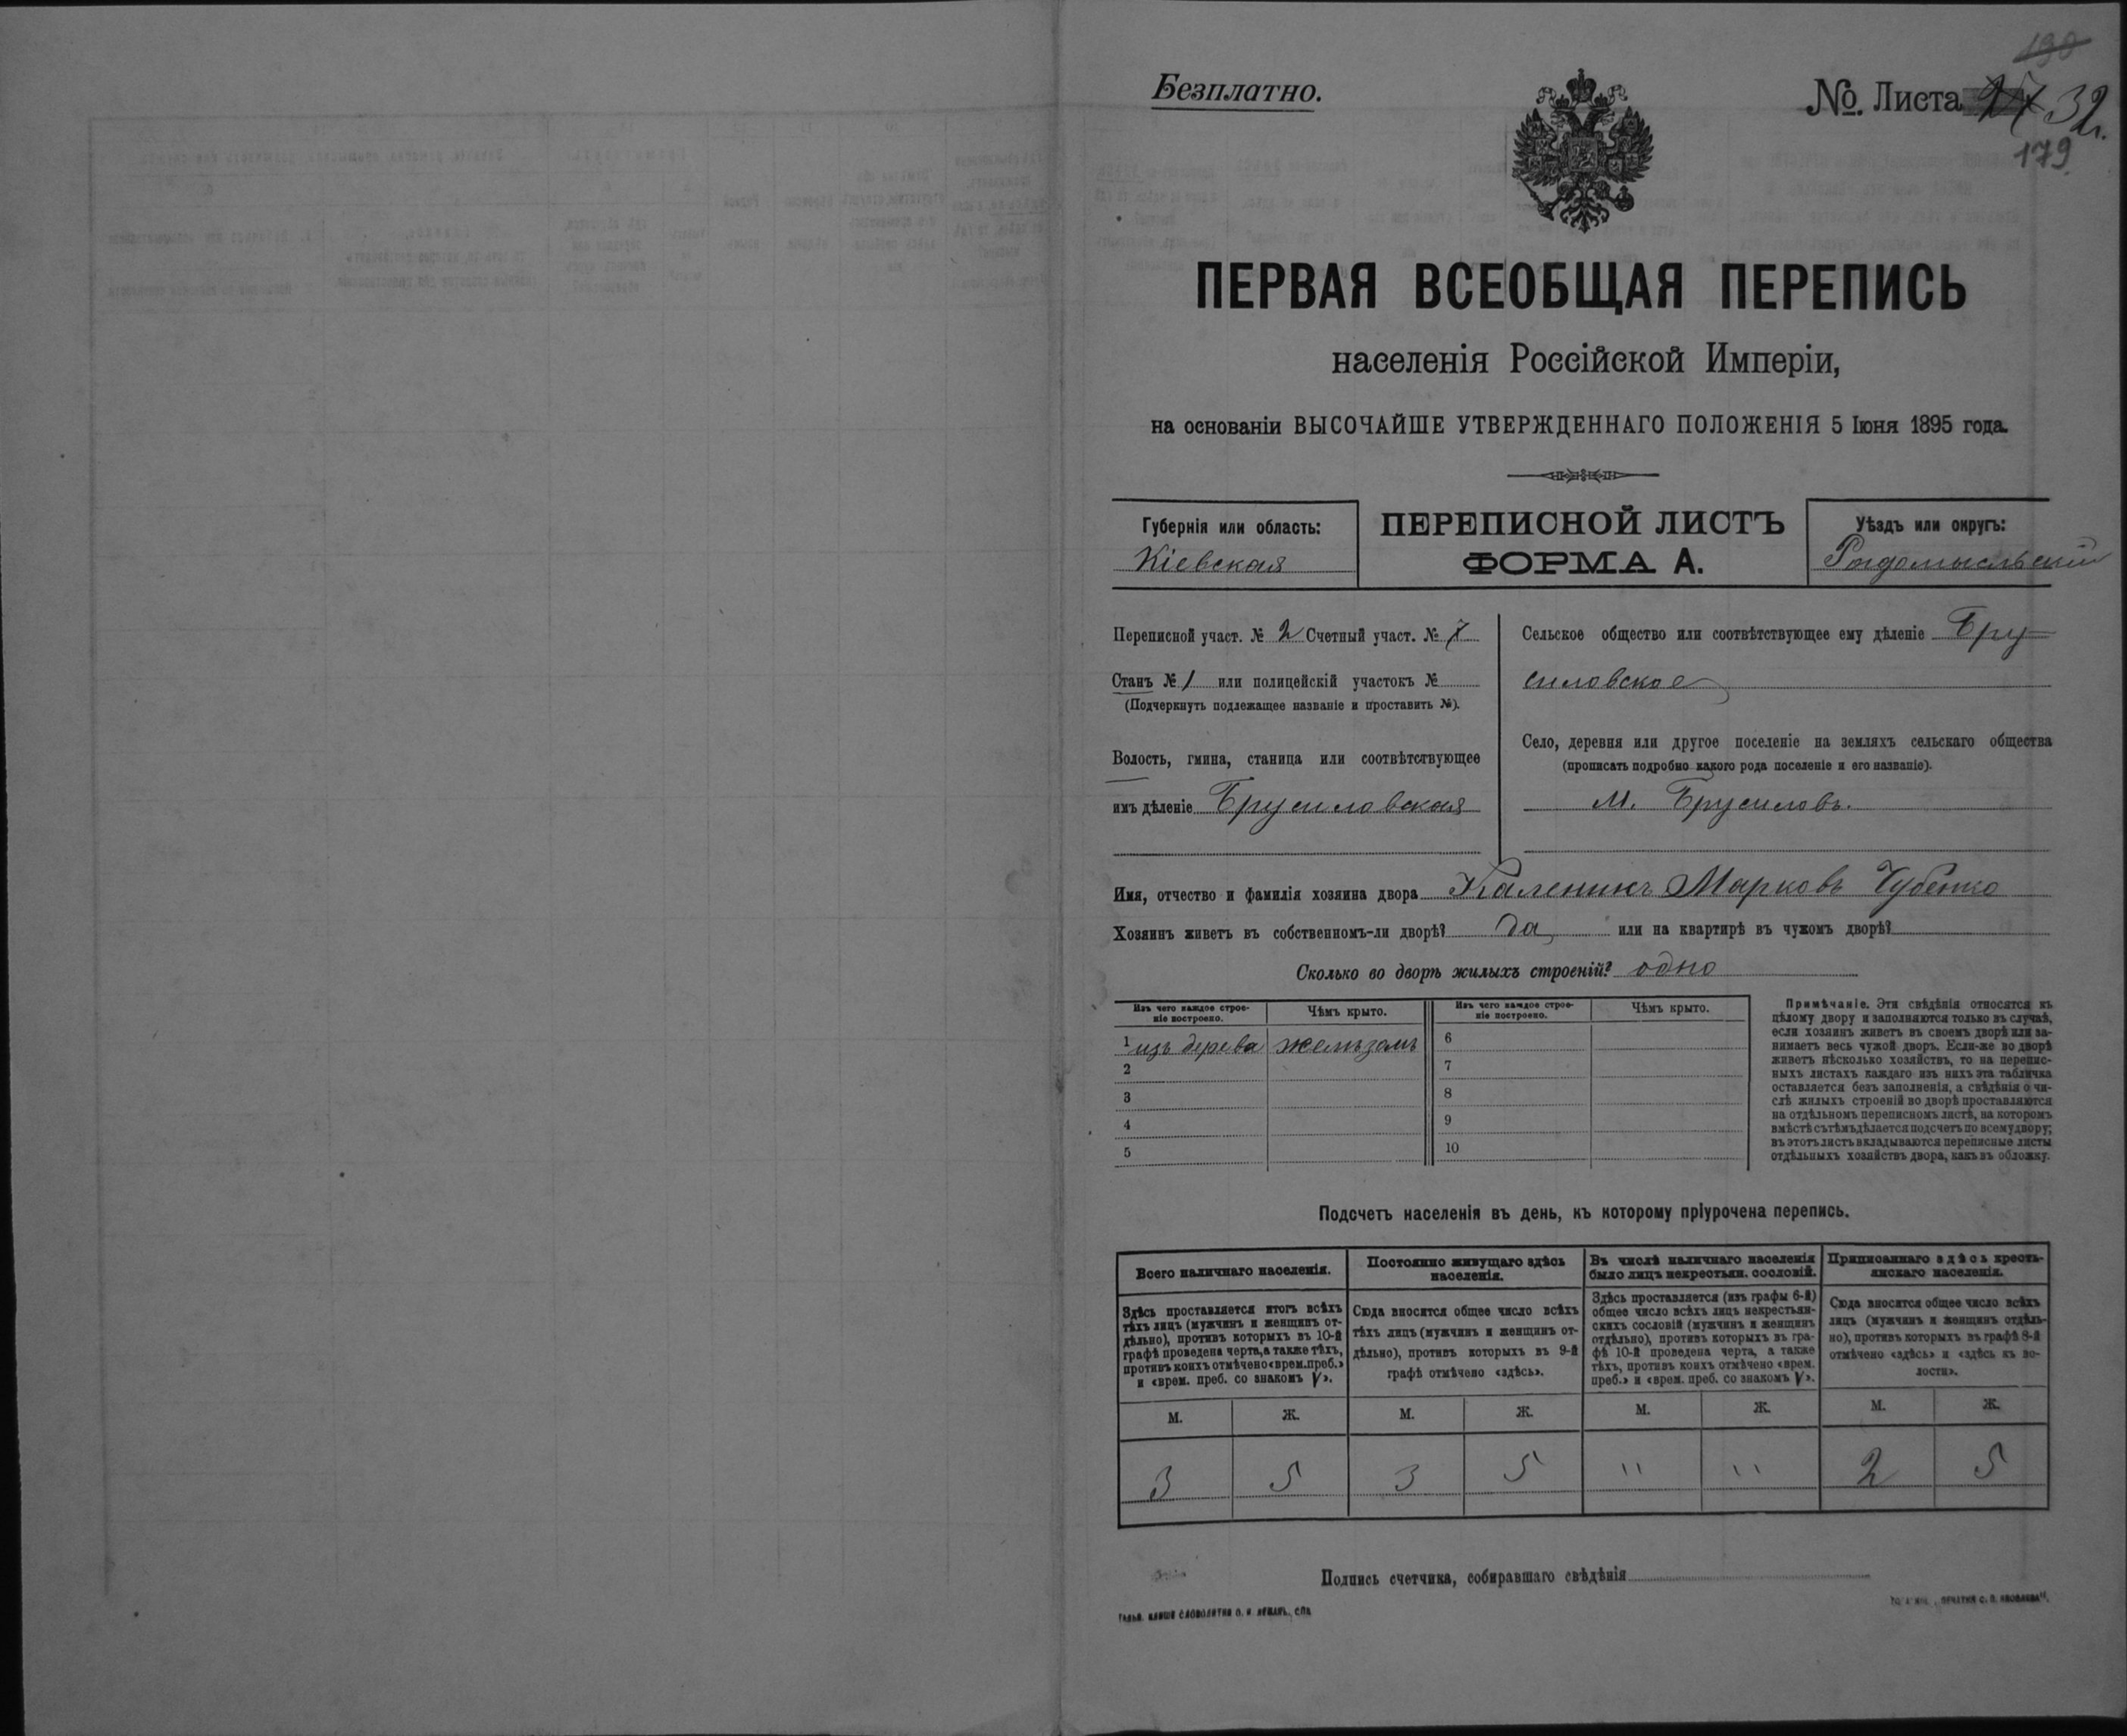 190
Безплатно.
№ Листа 32.
179
ПЕРВАЯ ВСЕОБЩАЯ ПЕРЕПИСЬ
населенія Россійской Имперіи,
на основаніи ВЫСОЧАЙШЕ УТВЕРЖДЕННАГО ПОЛОЖЕНІЯ 5 Іюня 1895 года.
Губернія или область:
Кіевская
ПЕРЕПИСНОЙ ЛИСТЪ
ФОРМА А.
Уѣздъ или округъ:
Радомысльскій
Переписной участ. № 2 Счетный участ. № 7
Станъ № 1 или полицейскій участокъ №
(Подчеркнуть подлежащее названіе и проставить №).
Волость, гмина, станица или соотвѣтствующее
имъ дѣленіе Брусиловская
Сельское общество или соотвѣтствующее ему дѣленіе Бру-
силовское
Село, деревня или другое поселеніе на земляхъ сельскаго общества
(прописать подробно какого рода поселеніе и его названіе).
М. Брусиловъ.
Имя, отчество и фамилія хозяина двора Каленикъ Марковъ Чубенко
Хозяинъ живетъ въ собственномъ-ли дворѣ? да или на квартирѣ въ чужомъ дворѣ?
Сколько во дворѣ жилыхъ строеній? одно
Изъ чего каждое строе-
ніе построено.
Чѣмъ крыто.
Изъ чего каждое строе-
ніе построено.
Чѣмъ крыто.
1 изъ дерева желѣзомъ 6
2 7
3 8
4 9
5 10
Примѣчаніе. Эти свѣдѣнія относятся къ
цѣлому двору и заполняются только въ случаѣ,
если хозяинъ живетъ въ своемъ дворѣ или за-
нимаетъ весь чужой дворъ. Если-же во дворѣ
живетъ нѣсколько хозяйствъ, то на перепис-
ныхъ листахъ каждаго изъ нихъ эта табличка
оставляется безъ заполненія, а свѣдѣнія о чи-
слѣ жилыхъ строеній во дворѣ проставляются
на отдѣльномъ переписномъ листѣ, на которомъ
вмѣстѣ съ тѣмъ дѣлается подсчетъ по всему двору;
въ этотъ листъ вкладываются переписные листы
отдѣльныхъ хозяйствъ двора, какъ въ обложку.
Подсчетъ населенія въ день, къ которому пріурочена перепись.
Всего наличнаго населенія.
Здѣсь проставляется итогъ всѣхъ
тѣхъ лицъ (мужчинъ и женщинъ от-
дѣльно), противъ которыхъ въ 10-й
графѣ проведена черта, а также тѣхъ,
противъ коихъ отмѣчено «врем. преб.»
и «врем. преб. со знакомъ V».
Постоянно живущаго здѣсь
населенія.
Сюда вносится общее число всѣхъ
тѣхъ лицъ (мужчинъ и женщинъ от-
дѣльно), противъ которыхъ въ 9-й
графѣ отмѣчено «здѣсь».
Въ числѣ наличнаго населенія
было лицъ некрестьян. сословій.
Здѣсь проставляется (изъ графы 6-й)
общее число всѣхъ лицъ некрестьян-
скихъ сословій (мужчинъ и женщинъ
отдѣльно), противъ которыхъ въ гра-
фѣ 10-й проведена черта, а также
тѣхъ, противъ коихъ отмѣчено «врем.
преб.» и «врем. преб. со знакомъ V».
Приписаннаго здѣсь кресть-
янскаго населенія.
Сюда вносится общее число всѣхъ
лицъ (мужчинъ и женщинъ отдѣль-
но), противъ которыхъ въ графѣ 8-й
отмѣчено «здѣсь» и «здѣсь въ во-
лости».
М. Ж. М. Ж. М. Ж. М. Ж.
3 5 3 5 " " 2 5
Подпись счетчика, собиравшаго свѣдѣнія